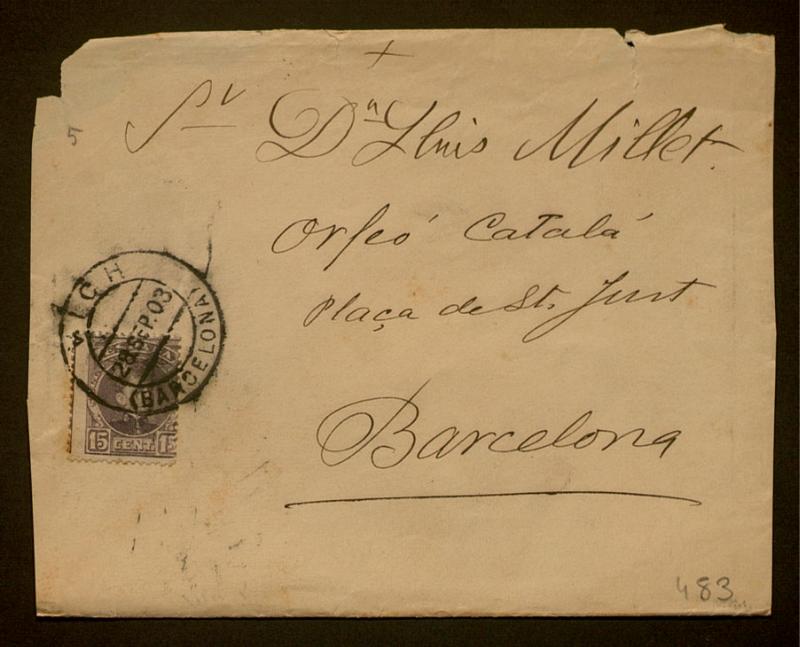 +
5
Sr Dn Lluis Millet.
Orfeó Catalá
Plaça de St. Just
VICH
28 SEP. 03
(BARCELONA)
15 CENT. 15
Barcelona
483